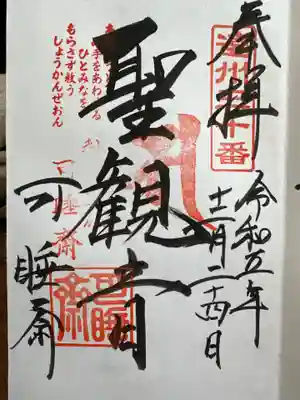 奉拝
令和五年
十二月二十四日
聖観音
可睡斎
手をあわ
ひとみなを
もらさず救う
しょうかんぜおん
可睡斎